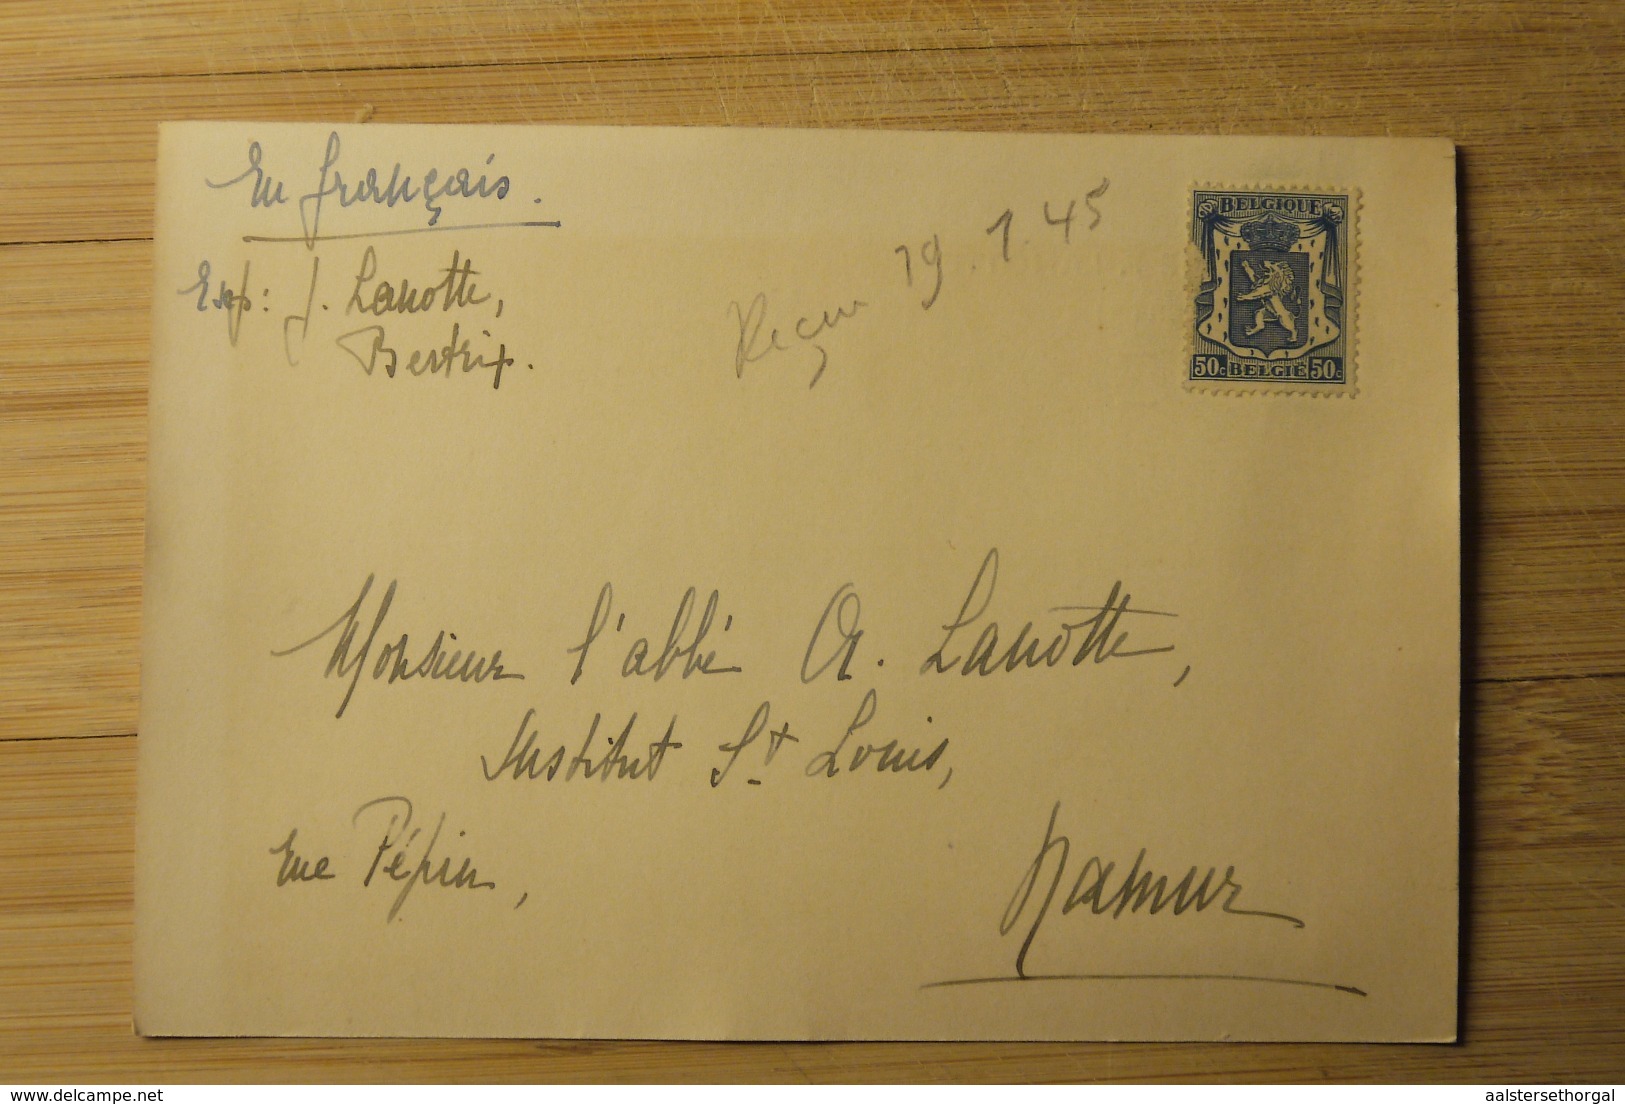 En français.
Exp: J. Lanotte,
Bertrix.
Reçu 19.1.45
BELGIQUE
50c BELGIË 50c
Monsieur l'abbé A. Lanotte,
Institut St Louis,
rue Pépin,
Namur
delcampe.net
aalstersethorgal